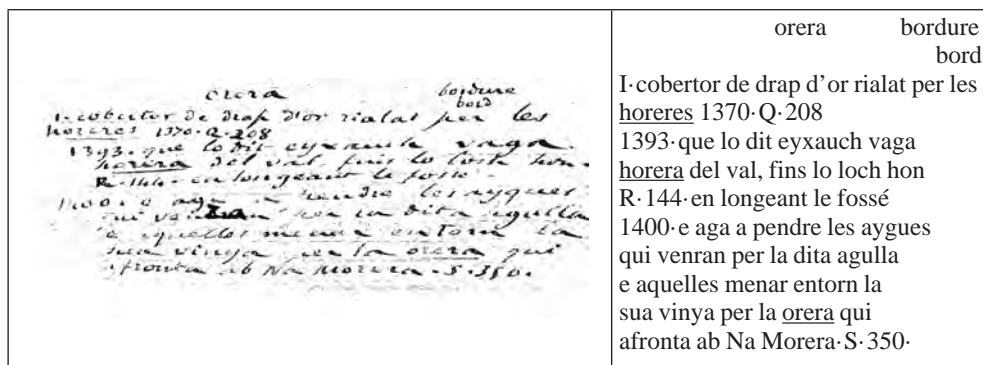 orera bordure
bord
I·cobertor de drap d'or rialat per les
horeres 1370·Q·208
1393·que lo dit eyxauch vaga
horera del val, fins lo loch hon
R·144·en longeant le fossé
1400·e aga a pendre les aygues
qui venran per la dita agulla
e aquelles menar entorn la
sua vinya per la orera qui
afronta ab Na Morera·S·350·
orera bordure
bord
I·cobertor de drap d'or rialat per les
horeres 1370·Q·208
1393·que lo dit eyxauch vaga
horera del val, fins lo loch hon
R·144·en longeant le fossé
1400·e aga a pendre les aygues
qui venran per la dita agulla
e aquelles menar entorn la
sua vinya per la orera qui
afronta ab Na Morera·S·350·